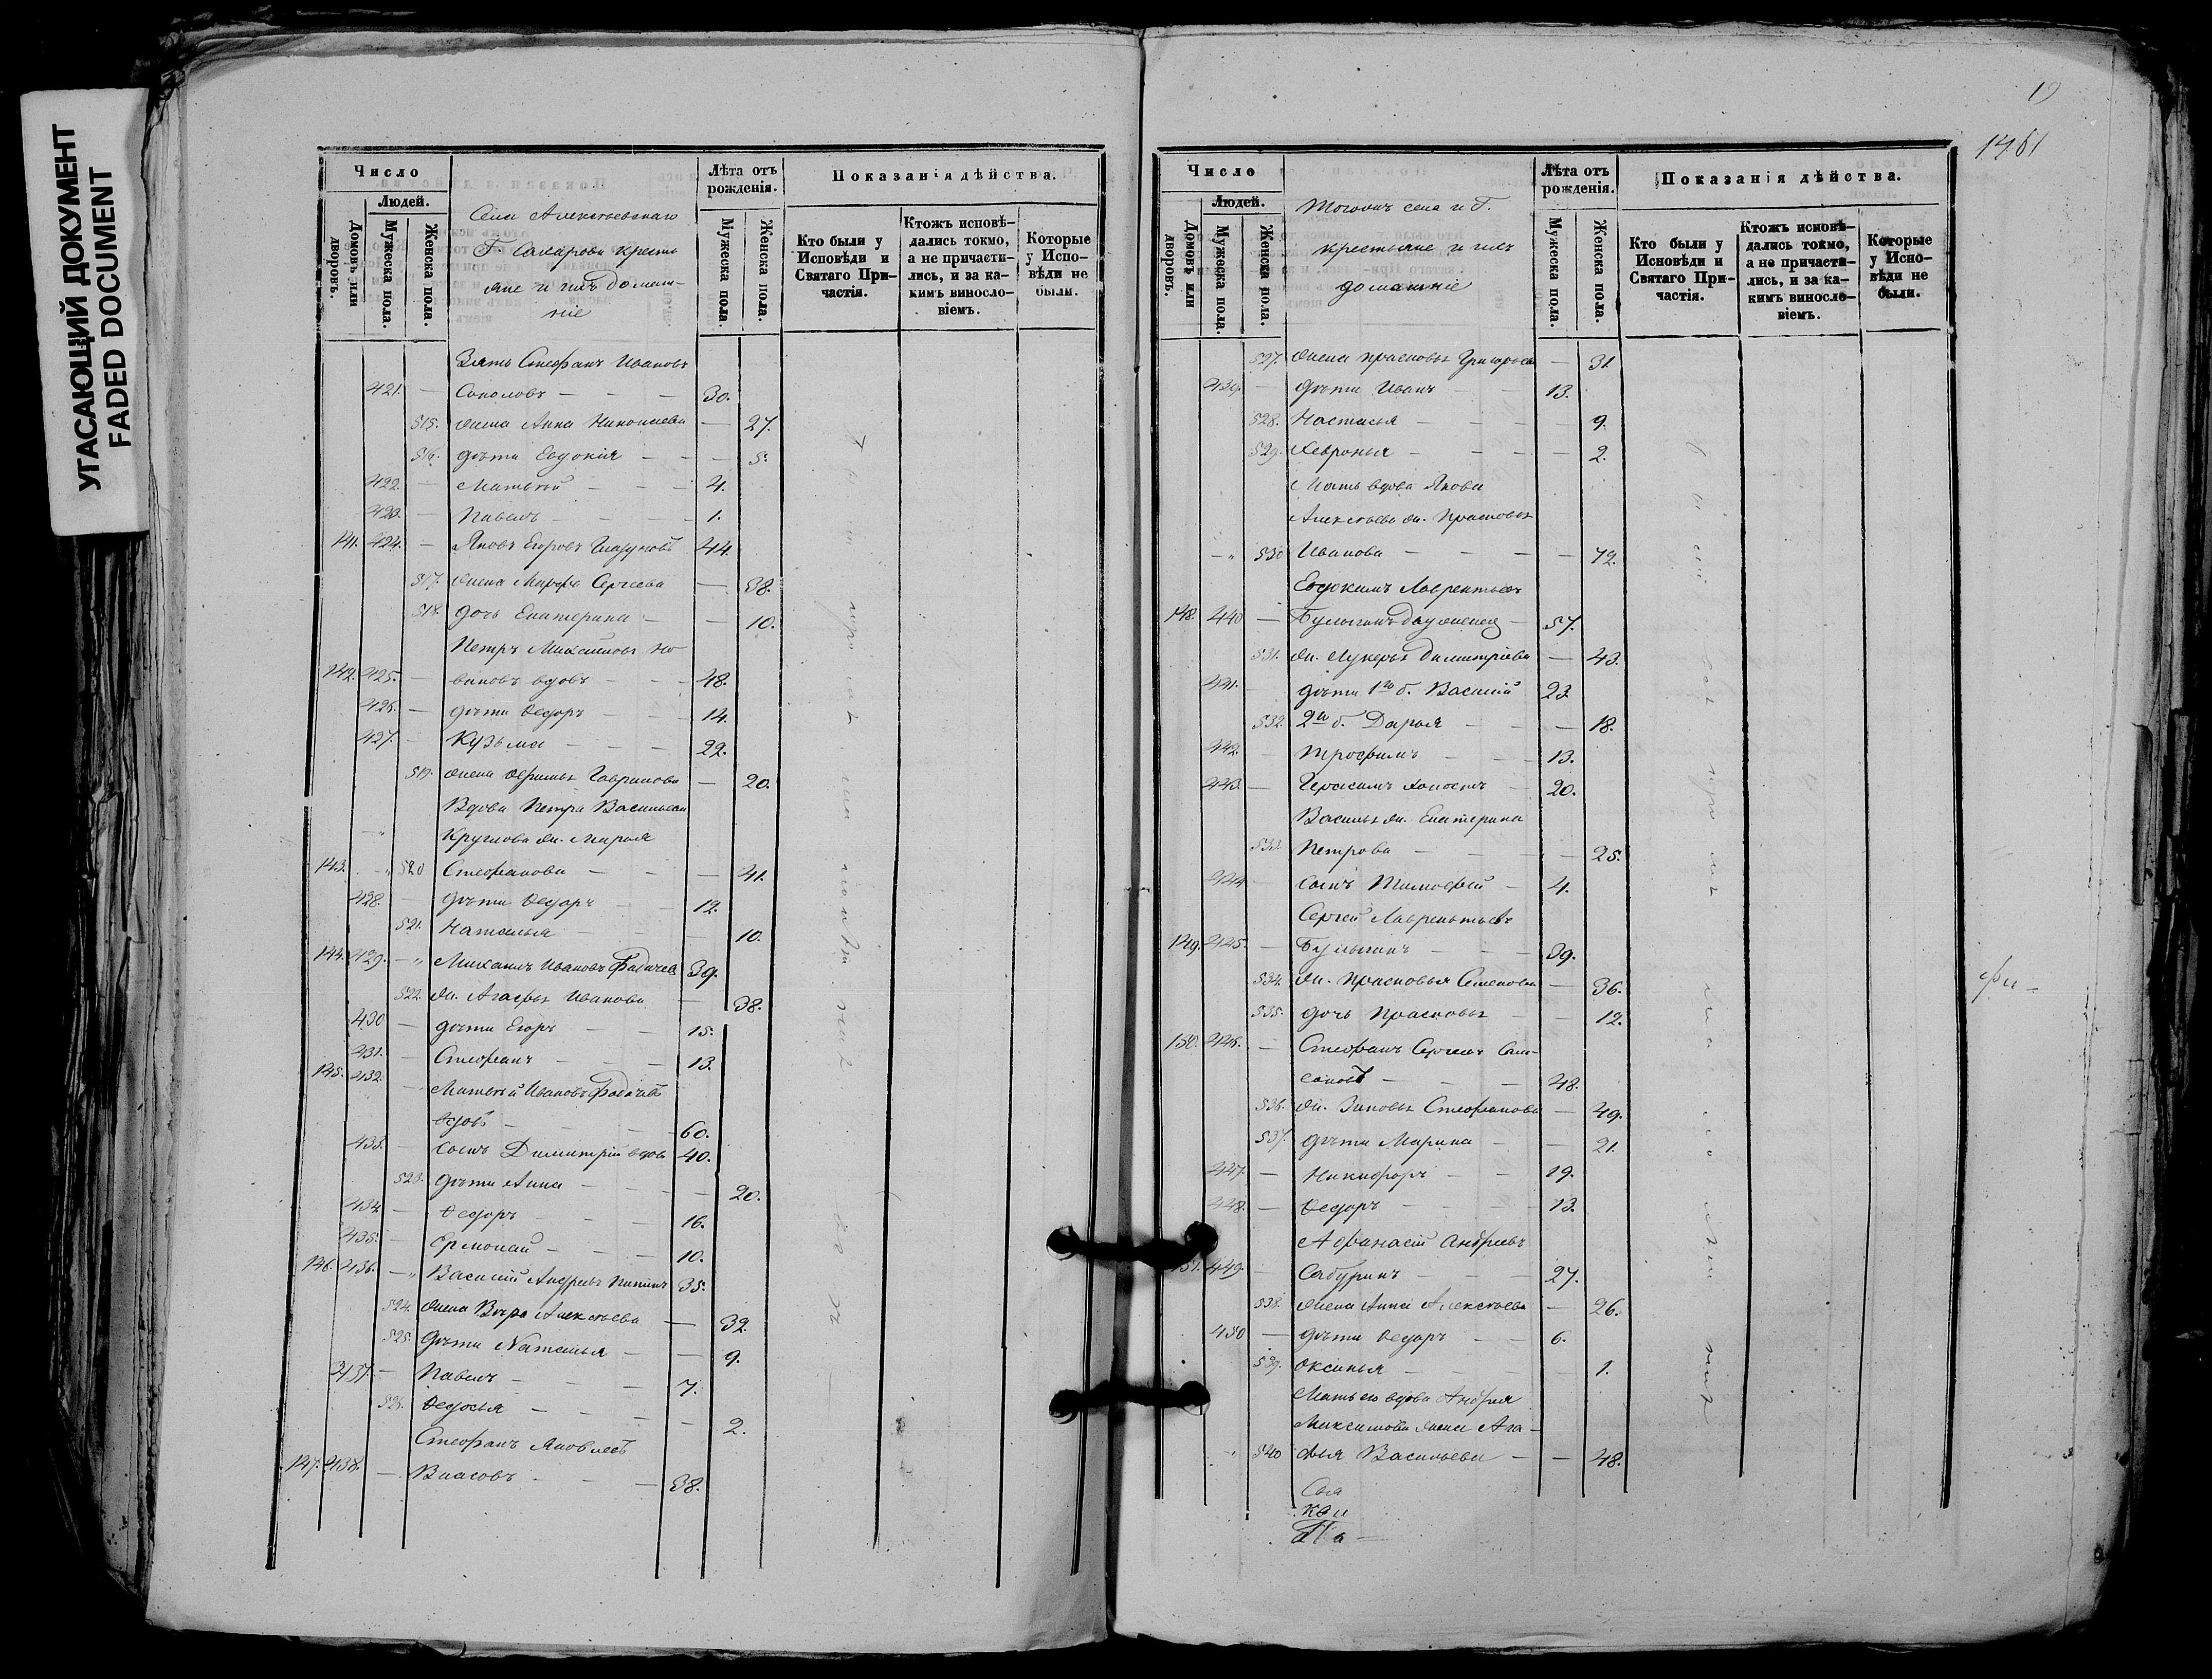 УГАСАЮЩИЙ ДОКУМЕНТ
FADED DOCUMENT
Число
Людей.
Домовъ или дворовъ.
Мужеска пола.
Женска пола.
Села Алексѣевскаго
Г. Сахарова крестья
яне и ихъ домаш-
ніе
Лѣта отъ рожденія.
Мужеска пола.
Женска пола.
Показанія дѣйства.
Кто были у Исповѣди и Святаго Причастія.
Ктожъ исповѣдались токмо, а не причастились, и за какимъ винословіемъ.
Которые у Исповѣди не были.
Зять Стефанъ Ивановъ
421. — Соколовъ — 30.
515. жена Анна — 27.
516. дѣти Евдокія — 5.
422. — Матвей — 4.
423. — Павелъ — 1.
141. 424. — Яковъ Егоровъ Глазуновъ 44.
517. жена Марфа Сергеева — 38.
518. дочь Екатерина — 10.
Петръ Михайловъ Но-
142. 425. — виковъ вдовъ — 48.
426. — дѣти Ѳедоръ — 14.
427. — Кузьма — 22.
519. жена Гаврилова — 20.
Вдова Петра Васильева
Круглова ж. Марья
143. — 520 Стефанова — 41.
428. — дѣти Ѳедоръ — 12.
521. Наталья — 10.
144. 429. — Михаилъ Ивановъ 39.
522. ж. Агафья Иванова — 38.
430 — дѣти Егоръ — 15.
431. — Стефанъ — 13.
145. 432. — Матвей Ивановъ
вдовъ — 60.
433. — сынъ Димитрій вдовъ 40.
523. дѣти Анна — 20.
434. — Ѳедоръ — 16.
435. — Ермолай — 10.
146. 436. — Василій Андреевъ 35.
524. жена Вѣра Алексѣева — 32.
525. дѣти Наталья — 9.
437. — Павелъ — 7.
526. Ѳедосья — 2.
Стефанъ Яковлевъ
147. 438. — Власовъ — 38.
19
1461
Число
Людей.
Домовъ или дворовъ.
Мужеска пола.
Женска пола.
Тогожъ села и Г.
крестьяне и ихъ
домашніе
Лѣта отъ рожденія.
Мужеска пола.
Женска пола.
Показанія дѣйства.
Кто были у Исповѣди и Святаго Причастія.
Ктожъ исповѣдались токмо, а не причастились, и за какимъ винословіемъ.
Которые у Исповѣди не были.
527. жена Прасковья Григорьева — 31.
439. — дѣти Иванъ — 13.
528. Настасья — 9.
529. Хевронья — 2.
Мать вдова Якова
Алексѣева ж. Прасковья
530 Иванова — 72.
Евдокимъ Лаврентьевъ
148. 440 — Булыгинъ 57.
531. ж. Лукерья Димитріева — 43.
441. — дѣти 1го б. Василій 23.
532. 2го б. Дарья — 18.
442. — Трофимъ — 13.
443. — Герасимъ — 20.
Василья ж. Екатерина
533. Петрова — 25.
444 — сынъ Тимофей — 4.
Сергей Лаврентьевъ
149. 445. — Булыгинъ — 39.
534. ж. Прасковья Семенова — 36.
535. дочь Прасковья — 12.
150. 446. — Стефанъ Сергеевъ Сам-
соновъ — 48.
536. ж. Зиновья Стефанова — 49.
537. дѣти Марина — 21.
447. — Никифоръ — 19.
448. — Ѳедоръ — 13.
Афанасій Андреевъ
151. 449. — Сабуринъ — 27.
538. жена Анна Алексѣева — 26.
450 — дѣти Ѳедоръ — 6.
539. Оксинья — 1.
Мать его вдова Андрея
Максимова жена Ага-
540 фья Васильева — 48.